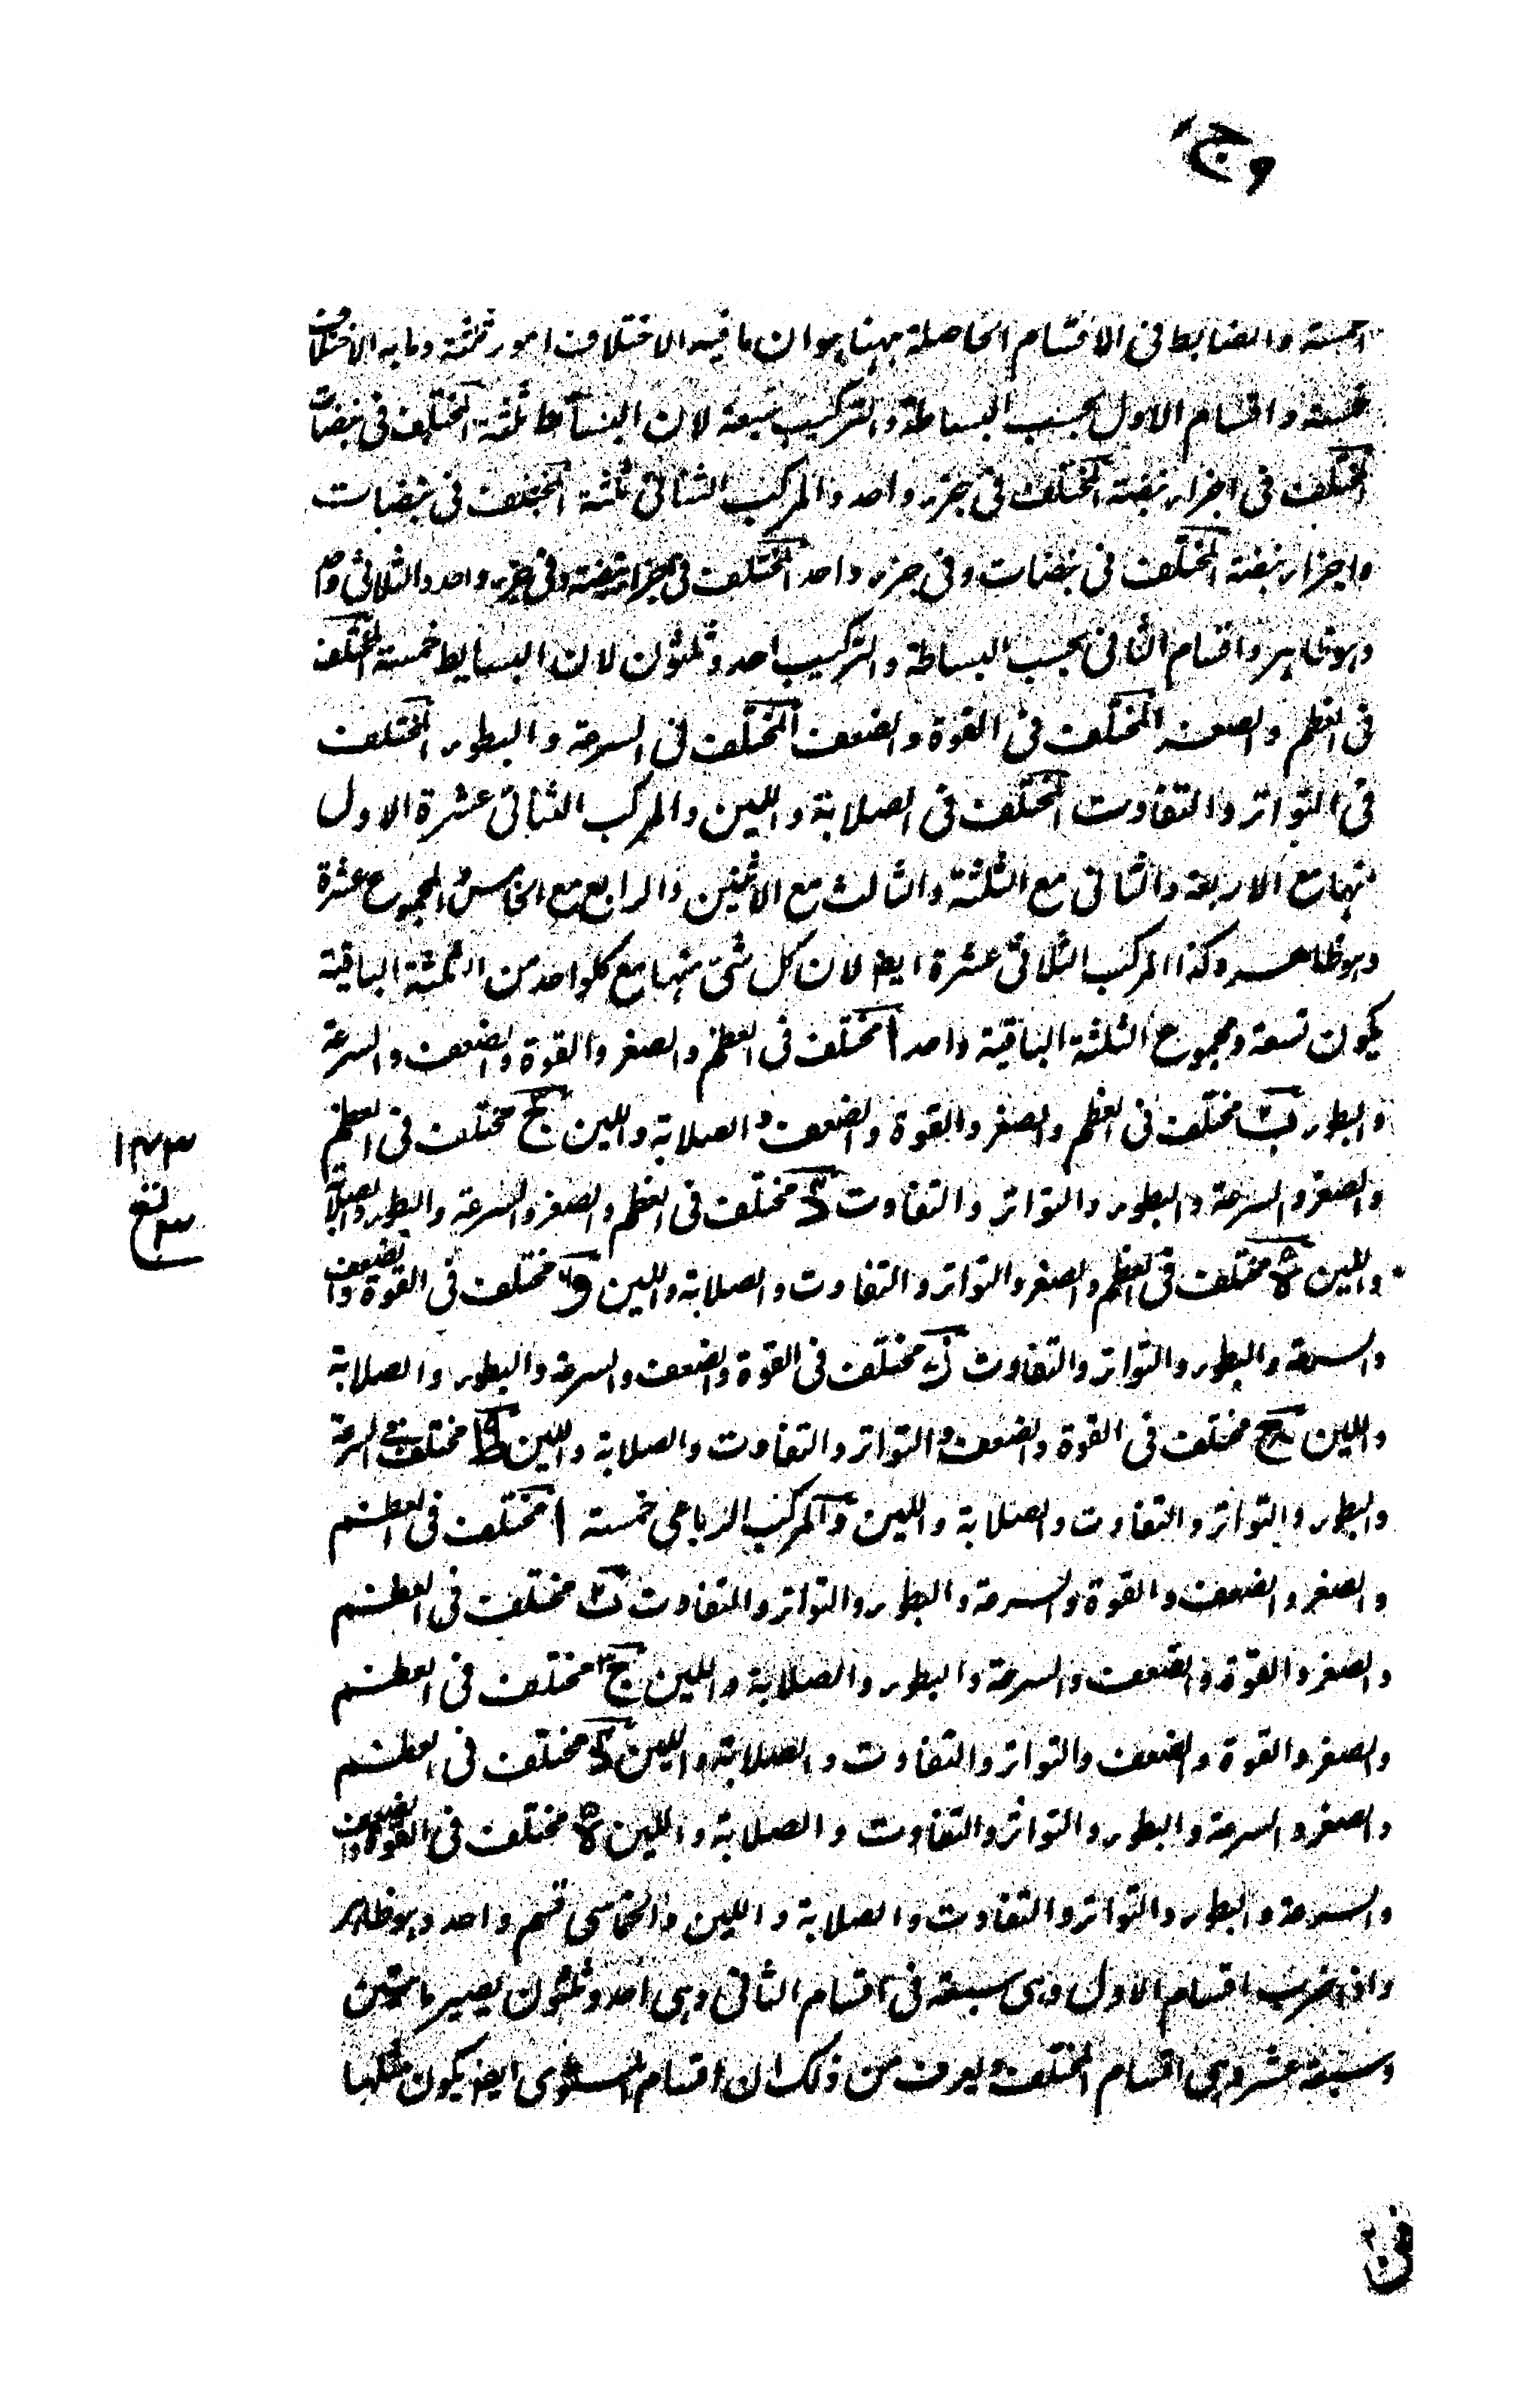 وج
خمسة والضابط فى الاقسام الحاصلة ههنا هو ان ما فيه الاختلاف امور ثلثة وما به الاختلاف
خمسة واقسام الاول بحسب البساطة والتركيب سبعة لان البسائط ثلثة المختلف فى نبضات
المختلف فى اجزاء نبضة المختلف فى جزء واحد والمركب الثنائى ثلثة المختلف فى نبضات
واجزاء نبضة المختلف فى نبضات وفى جزء واحد المختلف فى اجزاء نبضة وفى جزء واحد والثلاثى واحد
وهو ظاهر واقسام الثانى بحسب البساطة والتركيب احد وثلثون لان البسايط خمسة المختلف
فى العظم والصغر المختلف فى القوة والضعف المختلف فى السرعة والبطوء المختلف
فى التواتر والتفاوت المختلف فى الصلابة واللين والمركب الثنائى عشرة الاول
منها مع الاربعة والثانى مع الثلثة والثالث مع الاثنين والرابع مع الخامس والمجموع عشرة
وهو ظاهر وكذا المركب الثلاثى عشرة ايضا لان كل شى منها مع كلواحد من الثلثة الباقية
يكون تسعة ومجموع الثلثة الباقية واحد ا مختلف فى العظم والصغر والقوة والضعف والسرعة
والبطوء ب مختلف فى العظم والصغر والقوة والضعف والصلابة واللين ج مختلف فى العظم
والصغر والسرعة والبطوء والتواتر والتفاوت د مختلف فى العظم والصغر والسرعة والبطوء والصلابة
واللين ه مختلف فى العظم والصغر والتواتر والتفاوت والصلابة واللين و مختلف فى القوة والضعف
والسرعة والبطوء والتواتر والتفاوت ز مختلف فى القوة والضعف والسرعة والبطوء والصلابة
واللين ح مختلف فى القوة والضعف والتواتر والتفاوت والصلابة واللين ط مختلف فى السرعة
والبطوء والتواتر والتفاوت والصلابة واللين والمركب الرباعى خمسة ا مختلف فى العظم
والصغر والضعف والقوة والسرعة والبطوء والتواتر والتفاوت ب مختلف فى العظم
والصغر والقوة والضعف والسرعة والبطوء والصلابة واللين ج مختلف فى العظم
والصغر والقوة والضعف والتواتر والتفاوت والصلابة واللين د مختلف فى العظم
والصغر والسرعة والبطوء والتواتر والتفاوت والصلابة واللين ه مختلف فى القوة والضعف
والسرعة والبطوء والتواتر والتفاوت والصلابة واللين والخماسى قسم واحد وهو ظاهر
واذا ضرب اقسام الاول وهى سبعة فى اقسام الثانى وهى احد وثلثون يصير مائتين
وسبعة عشر وهى اقسام المختلف ويعرف من ذلك ان اقسام المستوى ايضا يكون مثلها
١٤٣